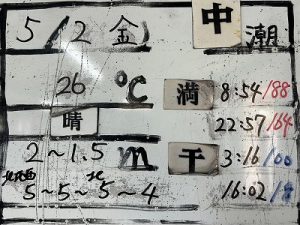 5/2 金 中潮
26 ℃ 満 8:54/188
晴 22:57/164
2~1.5m 干 3:16/100
北北西 北
5~5~5~4 16:02/18